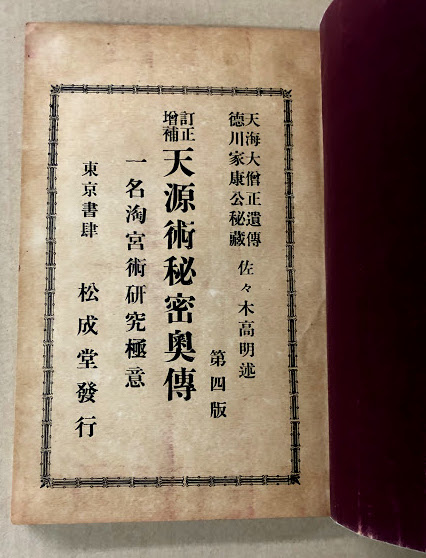 天海大僧正遺傳
德川家康公秘藏
佐々木高明述
訂正
增補
天源術秘密奧傳
第四版
一名淘宮術研究極意
東京書肆 松成堂發行